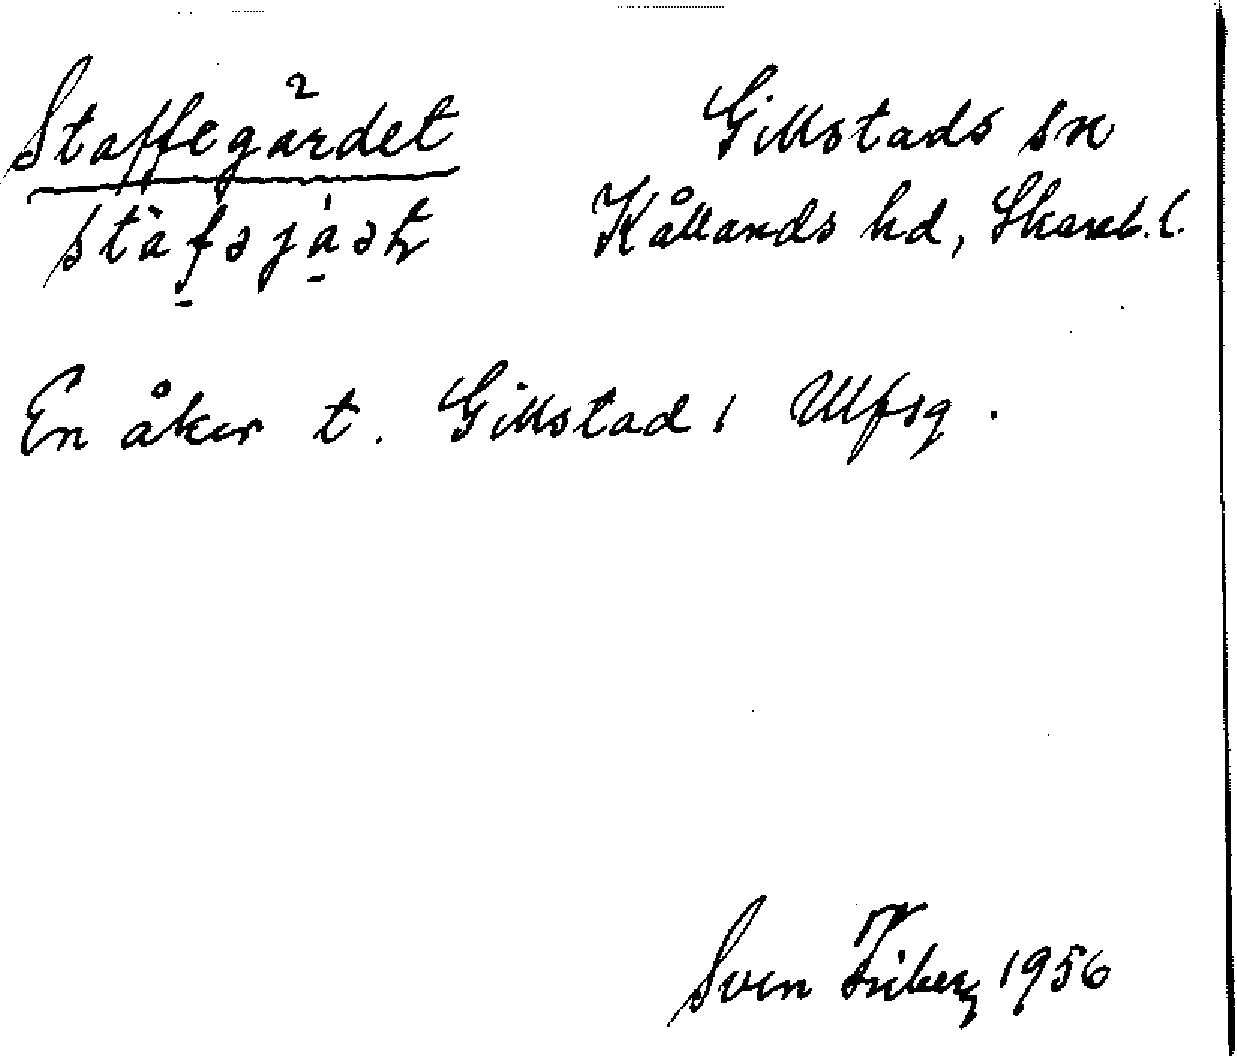 Staffegärdet
Gillstads sn
stàfəjást
Kållands hd, Skarab.l.
En åker t. Gillstad 1 Ulfsg.
Sven Friberg 1956